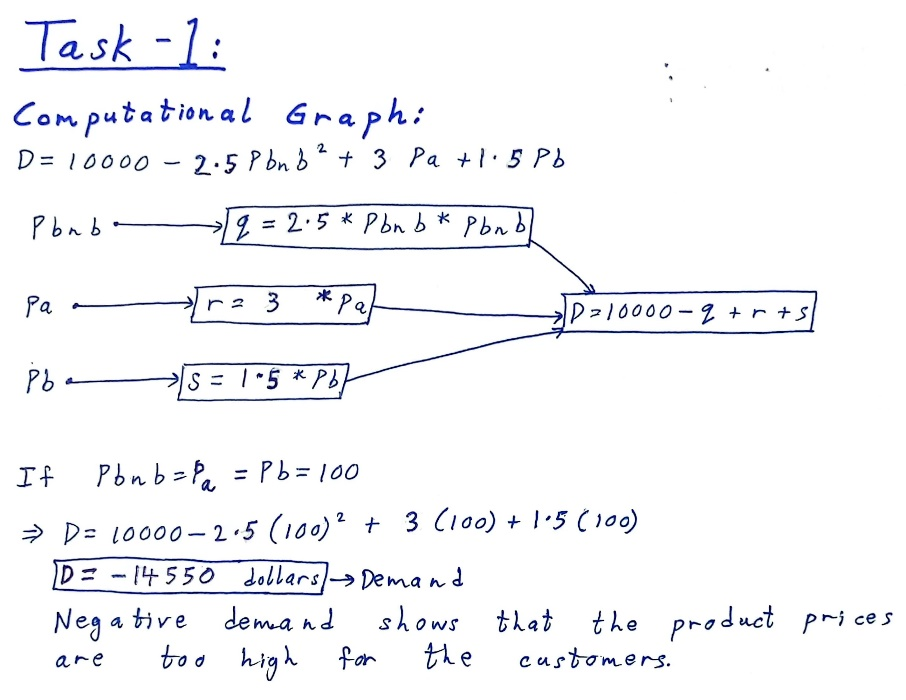 Task-1:
Computational Graph:
D = 10000 - 2.5 Pbnb² + 3 Pa + 1.5 Pb
Pbnb → q = 2.5 * Pbnb * Pbnb
Pa → r = 3 * Pa
D = 10000 - q + r + s
Pb → s = 1.5 * Pb
If Pbnb = Pa = Pb = 100
⇒ D = 10000 - 2.5 (100)² + 3 (100) + 1.5 (100)
D = -14550 dollars → Demand
Negative demand shows that the product prices
are too high for the customers.